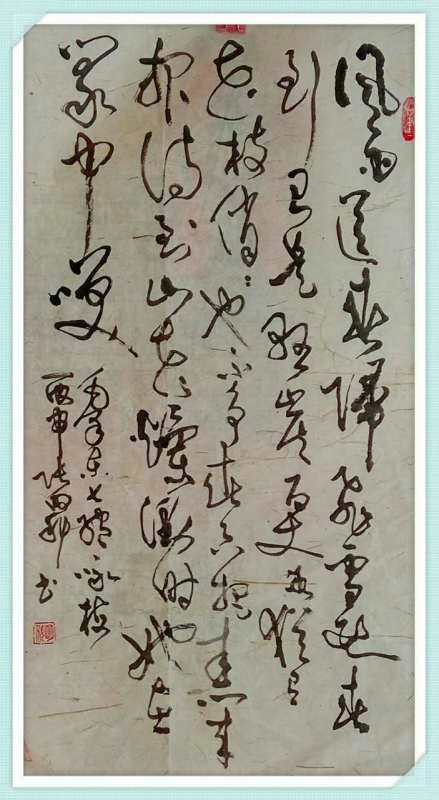 风雨送春归飞雪迎春
到已是悬崖百丈冰犹有
花枝俏俏也不争春只把春来
报待到山花烂漫时她在
丛中笑
毛泽东七绝咏梅
丙申 书